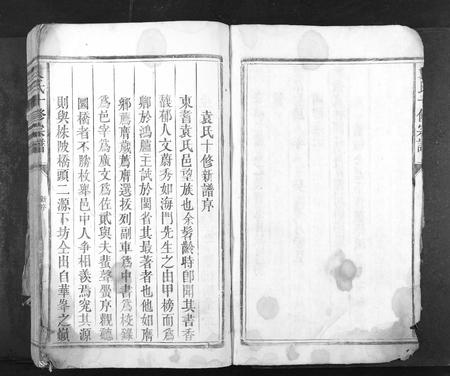 袁氏十修新譜序
東耆袁氏邑望族也余髫齡時卽聞其書香
馥郁人文蔚秀如海門先生之由甲榜而爲
卿於鴻臚主試於閩省其最著者也他如膺
鄉薦膺歲薦膺選拔列副車爲中書爲校錄
爲邑宰爲廣文爲佐貳與夫蜚聲黌序觀聽
圜橋者不勝枚舉邑中人爭相羨焉究其源
則與株陂橋頭二源下坊仝出自華峯之嶺
氏十修宗譜
袁氏十修宗譜